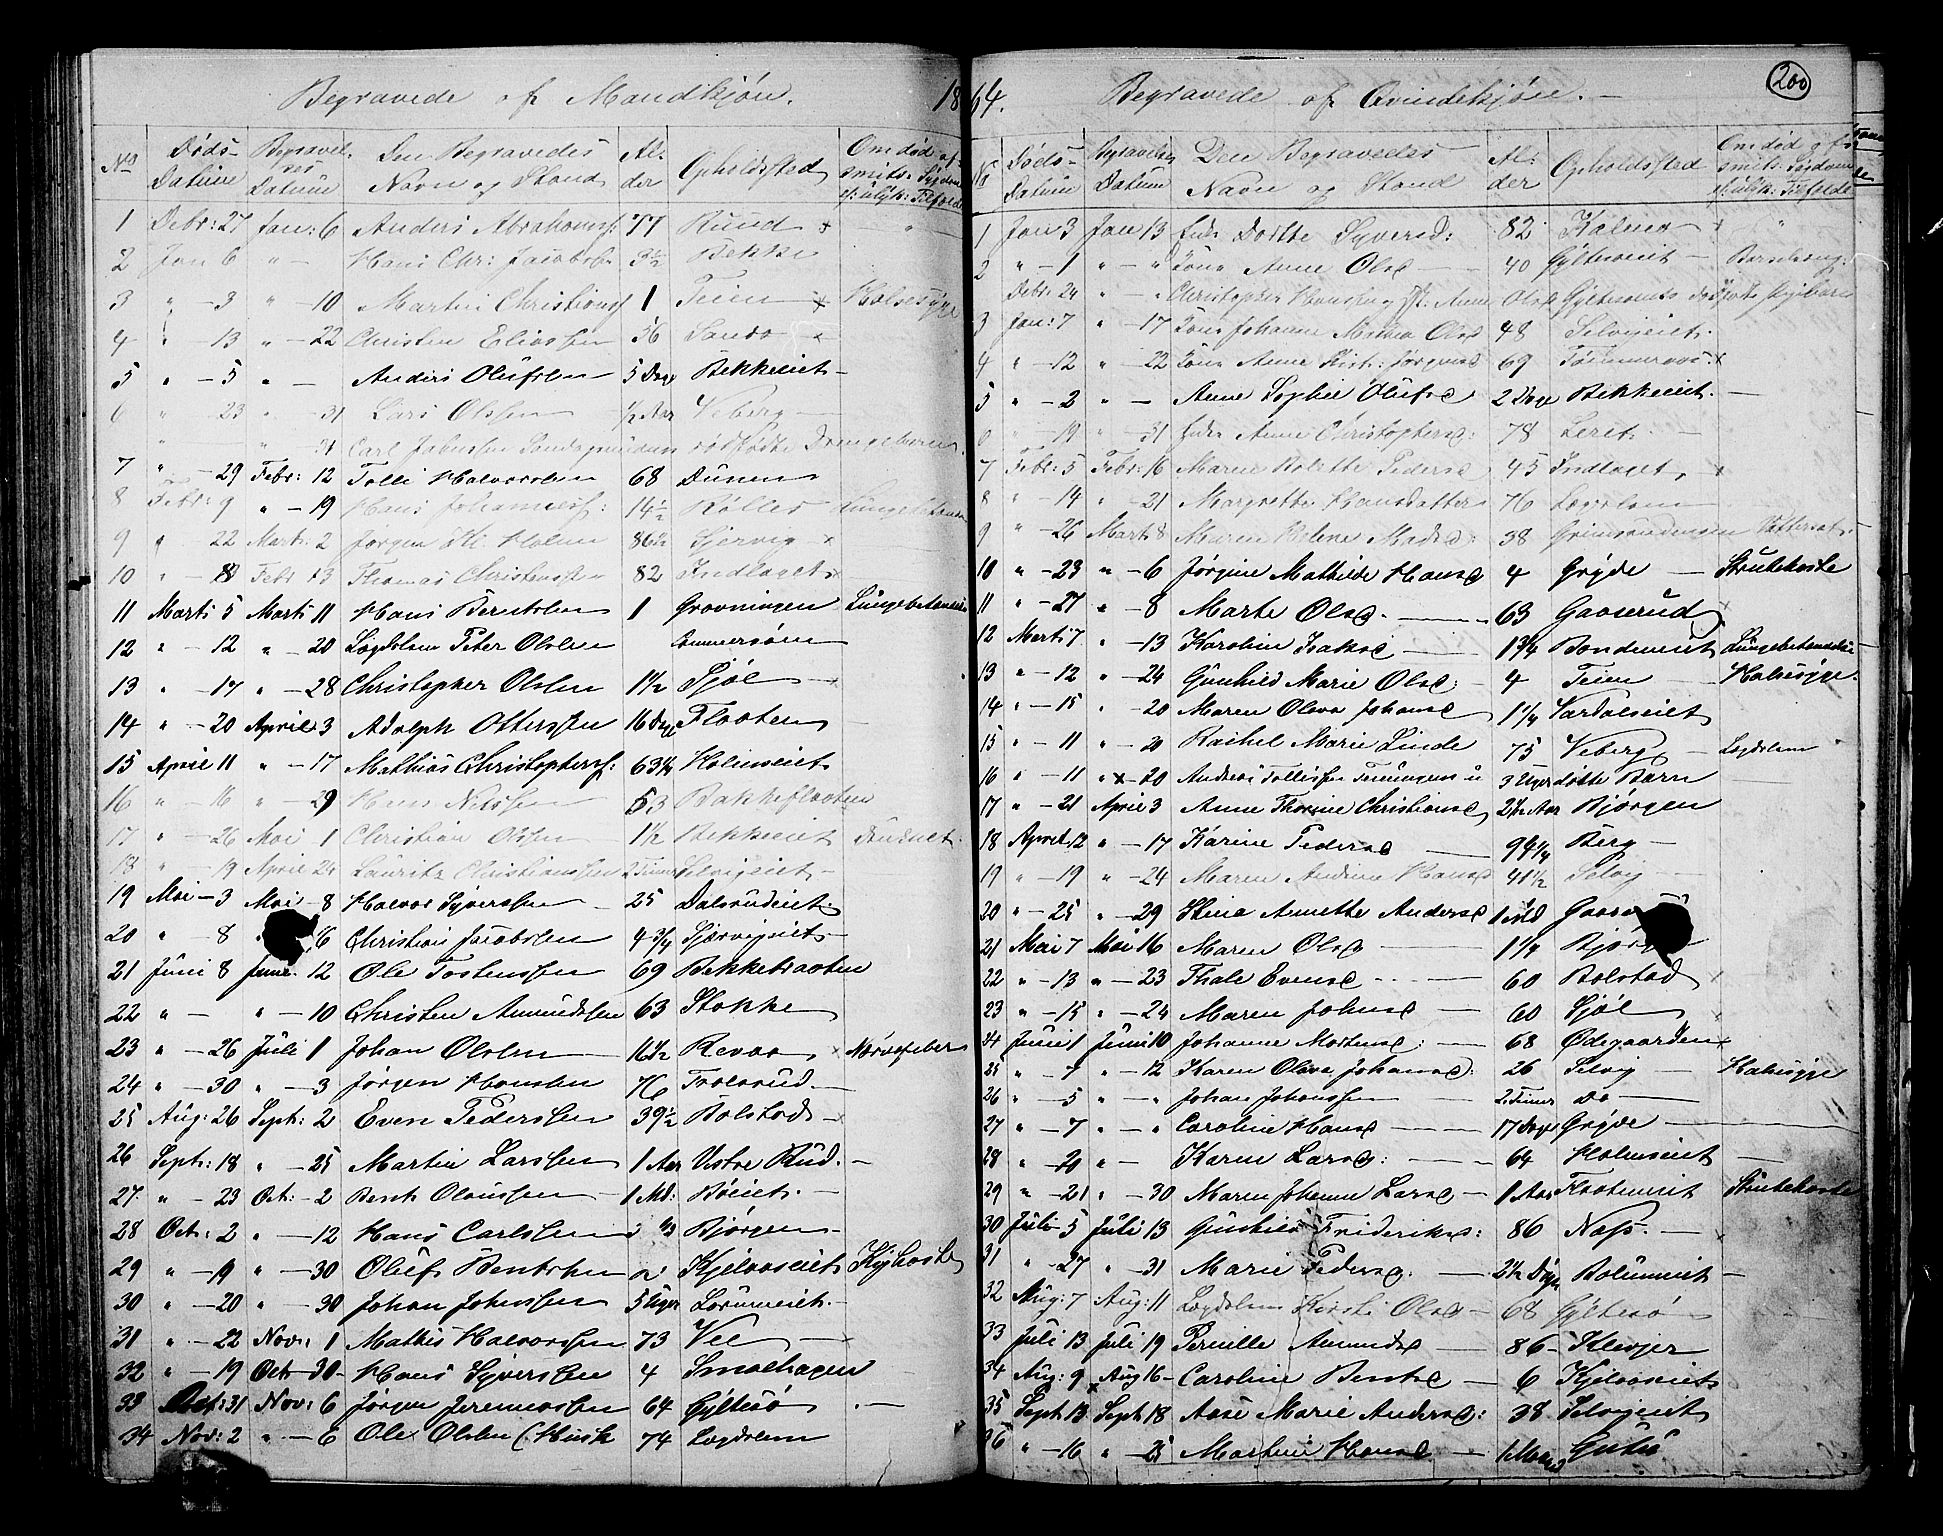 Begravede af Mandkjön. 1864.
No Døds-Datum Begravelses Datum Den Begravedes Navn og Stand Alder Opholdssted Om død af smits: Sygdom
1 Decbr: 27 Jan: 6 Anders Abrahamss: 77 Ruud
2 Jan 6 " - Hans Chr: Jacobs 3½ Bekke
3 " - 3 " - 10 Martin Christianss 1 Teien Halssyge
4 " - 13 " - 22 Christen Eliassen 36 Sando
5 " - 5 " - Anders Olufsen 5 Dage Bekkeeiet
6 " 23 " - 31 Lars Olssen ½ Aar Veberg
" " 31 Carl Jakobsen dødfødte Drengebarn
7 " - 29 Febr: 12 Tolli Halvorsen 68 Dunen
8 Febr: 9 " - 19 Hans Johanness: 14½ Rølles Lungebetændelse
9 " 22 Marts 2 Jørgen Holm 86½ Sjervig
10 " - Febr 13 Thomas Christensen 82 Indlaget
11 Marts 5 Marts 11 Hans Berntsen 1 Grovningen Lungebetændelse
12 " - 12 " - 20 Lægdslem Peter Olsen
13 " - 17 " - 28 Christopher Olsen 1½ Sjøl
14 " - 20 April 3 Adolph Ottersen 16 Dage Flaaten
15 April 11 " - 17 Mathias Christophers: 63¼ Holmeiet
16 " - 16 " - 29 Hans Nilssen 53 Bakkeflaaten
17 " - 26 Mai 1 Christian Olssen 1½ Bekkeeiet Druknet
18 " - 19 April 24 Lauritz Christianssen 2 Timer Selvigeiet
19 Mai - 3 Mai - 8 Halvor Syverssen 25 Dalsrudeiet
20 " - 8 16 Christian Jacobsen 4¾ Sjærvigeiet
21 Juni 8 Juni 12 Ole Tostenssen 69 Bekketraaten
22 " - " - 10 Christen Amundsen 63 Stokke
23 " - 26 Juli 1 Johan Olsen 16½ Revaa Nervefeber
24 " - 30 " - 3 Jørgen Hansen 76 Trolsrud
25 Aug: 26 Sept: 2 Even Pederssen 39½ Bolstad
26 Sept: 18 " - 25 Martin Larssen 1 Aar Vestre Rud
27 " - 23 Oct: 2 Bent Olaussen 1 Md: Böeiet
28 Oct: 2 " - 12 Hans Carlssen Bjørgen
29 " - 19 " - 30 Oluf Bentsen 2 Kjelaaseiet Kighoste
30 " - 20 " - 30 Johan Johnssen 5 Uger Lørumeiet
31 " - 22 Nov: 1 Mathis Halvorssen 73 Vee
32 " - 19 Oct 30 Hans Syversen 4 Smalhagen
33 Oct: 31 Nov: 6 Jørgen Jeremiassen 64 Gyltesø
34 Nov: 2 " - 6 Ole Olsen (Husk 74 Lægdslem
Begravede af Qvindekjön. 200
No Døds-Datum Begravelses Datum Den Begravedes Navn og Stand Alder Opholdssted Om død af smits: Sygdom
1 Jan 3 Jan 13 Enke Dorthe Syversd: 82 Holmen
2 " - 1 " " Kone Anne Olsd 40 Gylteseiet Barnseng
Decbr 24 " Christopher Hansen og Anne Olsd Gyltesøeiets dødfødte Pigebarn
3 Jan: 7 " - 17 Kone Johanne Mathea Olsd 48 Selvigeiet
4 " - 12 " - 22 Kone Anne Kirst: Jørgensd 69 Tømmeraas
5 " - 2 " - Anne Sophie Olufsd 2 Dage Bekkeeiet
6 " - 19 " - 31 Enke Anne Christophersd: 78 Leret
7 Febr: 5 Febr: 16 Maren Bolette Pedersd 45 Indlaget
8 " - 14 " - 21 Margrethe Hansdatter 76 Lægdslem
9 " - 26 Marts 8 Maren Helene Madsd: 38 Vattersot
10 " - 23 " - 6 Jørgine Mathilde Hansd 4 Grøjde Strubehoste
11 " - 27 " - 8 Marte Olsd 63 Gaaserud
12 Marts 7 " - 13 Karoline Isaksd 1¾ Bondeeiet Lungebetændelse
13 " - 12 " - 24 Gunhild Marie Olsd: 4 Teien Halssyge
14 " - 15 " - 20 Maren Olava Johansd 1¼ Vardalseiet
15 " - 11 " - 20 Rachel Marie Linde 75 Veberg Lægdslem
16 " - 11 " - 20 Andreas Tollissen 3 Uger døbte Barn
17 " - 21 April 3 Anne Thorine Christiansd 2½ Aar Bjørgen
18 April 12 " - 17 Karine Pedersd 94¼ Berg
19 " - 19 " - 24 Maren Andrine Hansd 41½ Selvig
20 " - 25 " - 29 Stina Annette Andersd 1 Md Gaase
21 Mai 7 Mai 16 Maren Olsd 1¼ Bjørg
22 " - 13 " - 23 Thale Evensd 60 Bolstad
23 " - 15 " - 24 Maren Johnsd 60 Sjøl
24 Juni 1 Juni 10 Johanne Mortensd: 68 Ødegaarden
25 " - 7 " - 12 Karen Olava Johansd: 26 Selvig Halssyge
26 " - 5 " - " Johan Johanssen 2 Timer Do
27 " - 7 " - " Caroline Hansd 17 Dage Grøjde
28 " - 20 " - Karen Larsd: 64 Holmeeiet
29 " - 21 " - 30 Maren Johanne Larsd 1 Aar Flaateneiet Strubehoste
30 Juli 5 Juli 13 Gunhild Frideriksd: 86 Næss
31 " - 27 " - 31 Marie Pedersd: 2½ Dage Bolumeiet
32 Aug: 7 Aug: 11 Lægdslem Kirsti Olsd 68 Gyltesö
33 Juli 13 Juli 19 Pernille Amundsd 86 Klevjer
34 Aug: 9 Aug 16 Caroline Bentsd 6 Kjelaaseiet
35 Sept 13 Sept 18 Aase Marie Andersd: 38 Selvigeiet
36 " - 16 " - 25 Martine Hansd 1 Maaned